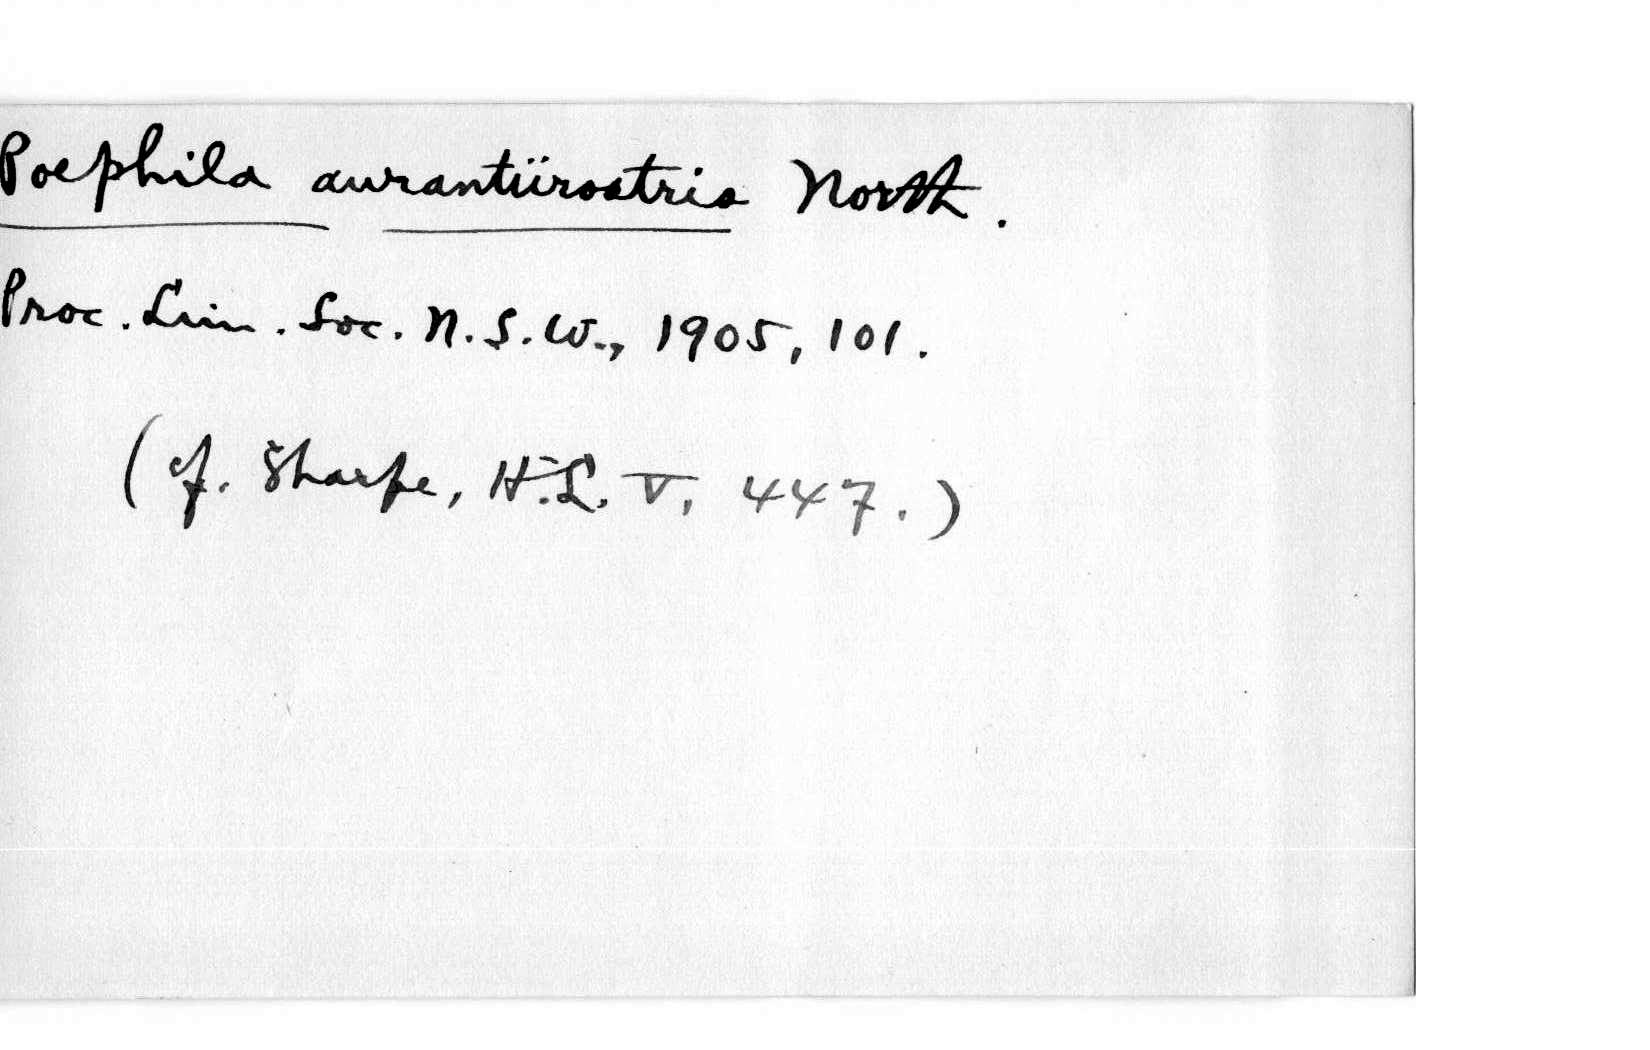 Poephila aurantiirostris North.
Proc. Lin. Soc. N.S.W., 1905, 101.
(cf. Sharpe, H.L. V, 447.)